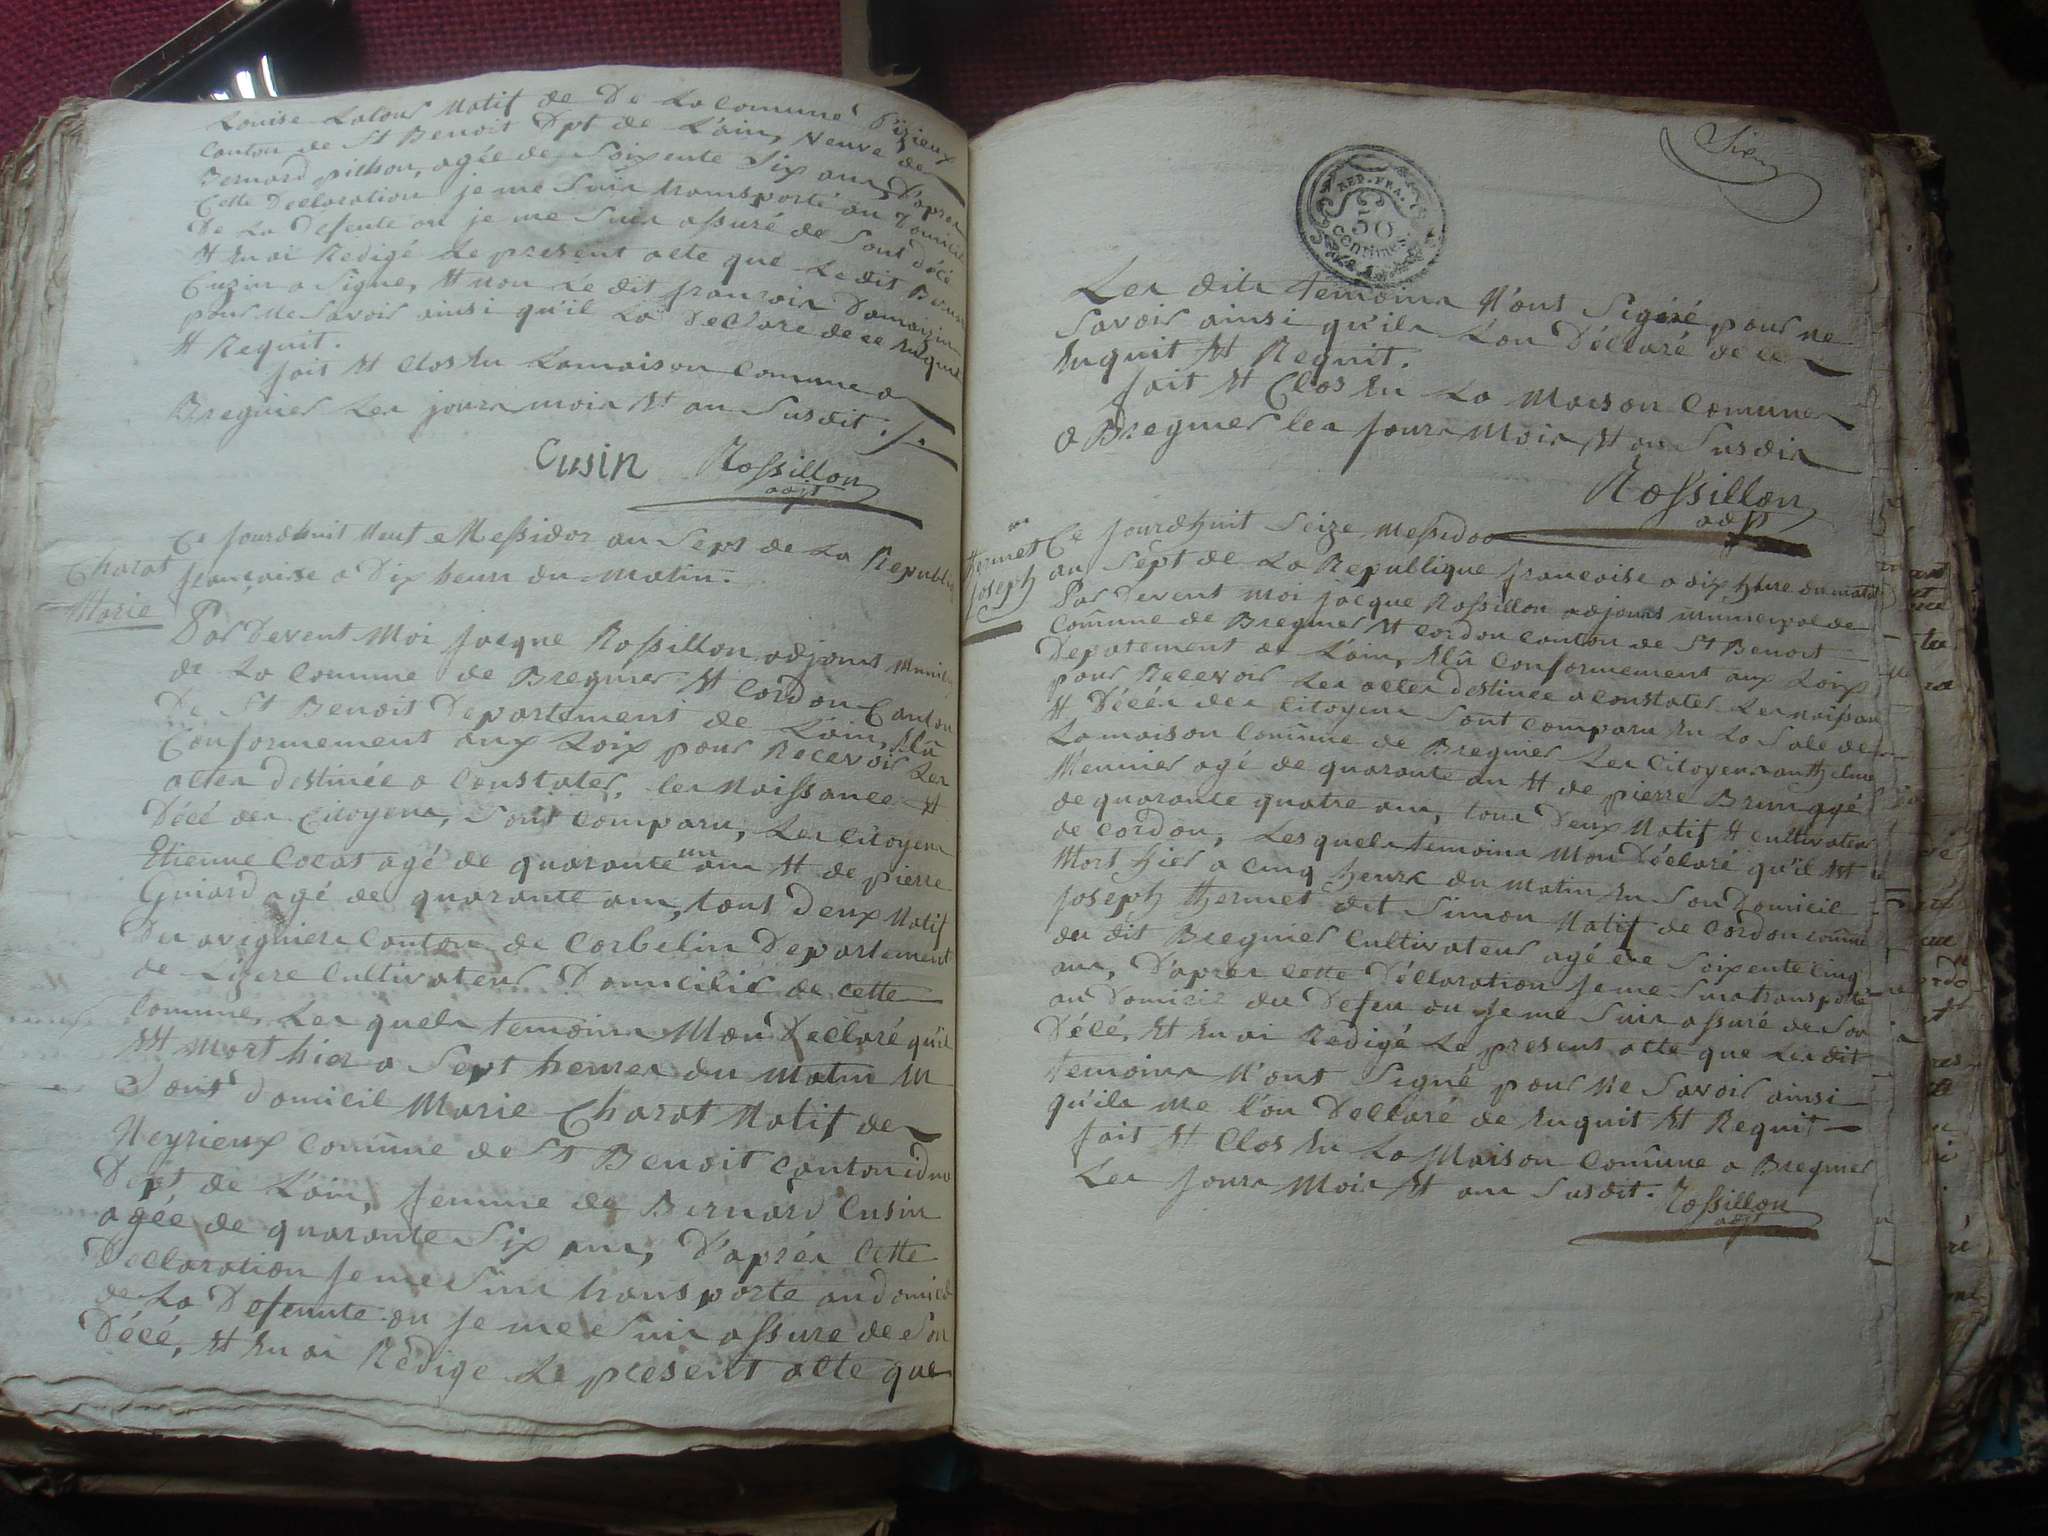 Louise Latour Natif de De La Comune d'izieux
Canton de St Benoit Dpt de L'ain, Veuve de
Bernard pithon, agée de Soixente Six ans, D'apres
Cette Declaration je me Suis transporté au Domicile
De La Defente ou je me Suis assuré de Sont décé
Et En ai Redigé Le present acte que Le dit
Cusin a Signe, Et non Le dit françois Damaizin
pour Ne Savoir ainsi qu'il La Déclaré de ce Enquie
Et Requit.
fait Et Clos En Lamaison Comune a
Bregnier Les jours mois Et an Susdit.
Cusin Rossillon
adjt
Ce Jourdhuit Neut Messidor an Sept de La Republiq
francaise a Dix heurs du Matin.
Charat
Marie
Par Devent Moi Jacque Rossillon adjoint Munici
de La Comune de Bregnier Et Cordon Canton
De St Benoit Departement de L'ain, Elû
Conformement aux Loix pour Recevoir Les
actes destinée a Constater, les Naissance Et
Décé des Citoyens, Sont Comparu, Les Citoyens
Etienne Cocat agé de quarante un ans Et de pierre
Guiard agé de quarante ans, tous deux Natif
Des avegniere Canton de Corbelin Departement
de Lizere Cultivateur Domicilié de cette
Comune, Les quels temoins M'on Declaré qu'il
Et Mort hier a Sept heures du Matin En
Sont domicil Marie Charat Natif de
Neyrieux Comûne de St Benoit Canton idm
Dept de L'ain, femme de Bernard Cusin
agée de quarante Six ans, D'aprés Cette
Declaration Je me Suis transporte au domicile
de La Defunte ou Je me Suis assure de Son
Décé, Et En ai Rédige Le present acte que
REP. FRA.
50
CENTIMES
Les dits temoins N'ont Signé pour ne
Savoir ainsi qu'ils L'on Déclaré de ce
Enquit Et Requit.
fait Et Clos En La Maison Comune
a Bregnier les Jours Mois Et an Susdis
Rossillon
adjt
Hermet
Joseph
Ce Jourdhuit Seize Messidor
an Sept de La Republique francaise a dix hure du matin
Par Devent Moi jacque Rossillon adjoint municipal de
Comûne de Bregnier Et Cordon Canton de St Benoit
Depatement de L'ain, Elû Conformement aux Loix
pour Recevoir Les actes destinée a Constater Les naissan
Et Décés des Citoyens Sont Comparu En La Sale de
La maison Comûne de Bregnier Les Citoyens anthelme
Meunier agé de quarante an Et de pierre Brun agé
de quarante quatre ans, tous Deux Natif Et Cultivateur
de Cordon, Lesquels temoins Mon Déclaré qu'il Et
Mort hier a Cinq heure du Matin En Son Domicil
Joseph Hermet dit Simon Natif de Cordon comûne
du dit Bregnier Cultivateur agé de Soixente Cinq
ans, D'apres Cette Déclaration Je me Suis transporté
au Domicil du Defeu ou Je me Suis assuré de Son
Décé, Et En ai Redigé Le present acte que Les dit
temoins N'ont Signé pour Ne Savoir ainsi
qu'ils me l'on Declaré de Enquit Et Requit
fait Et Clos En La Maison Comûne a Bregnier
Les Jours Mois Et an Susdit. Rossillon
adjt